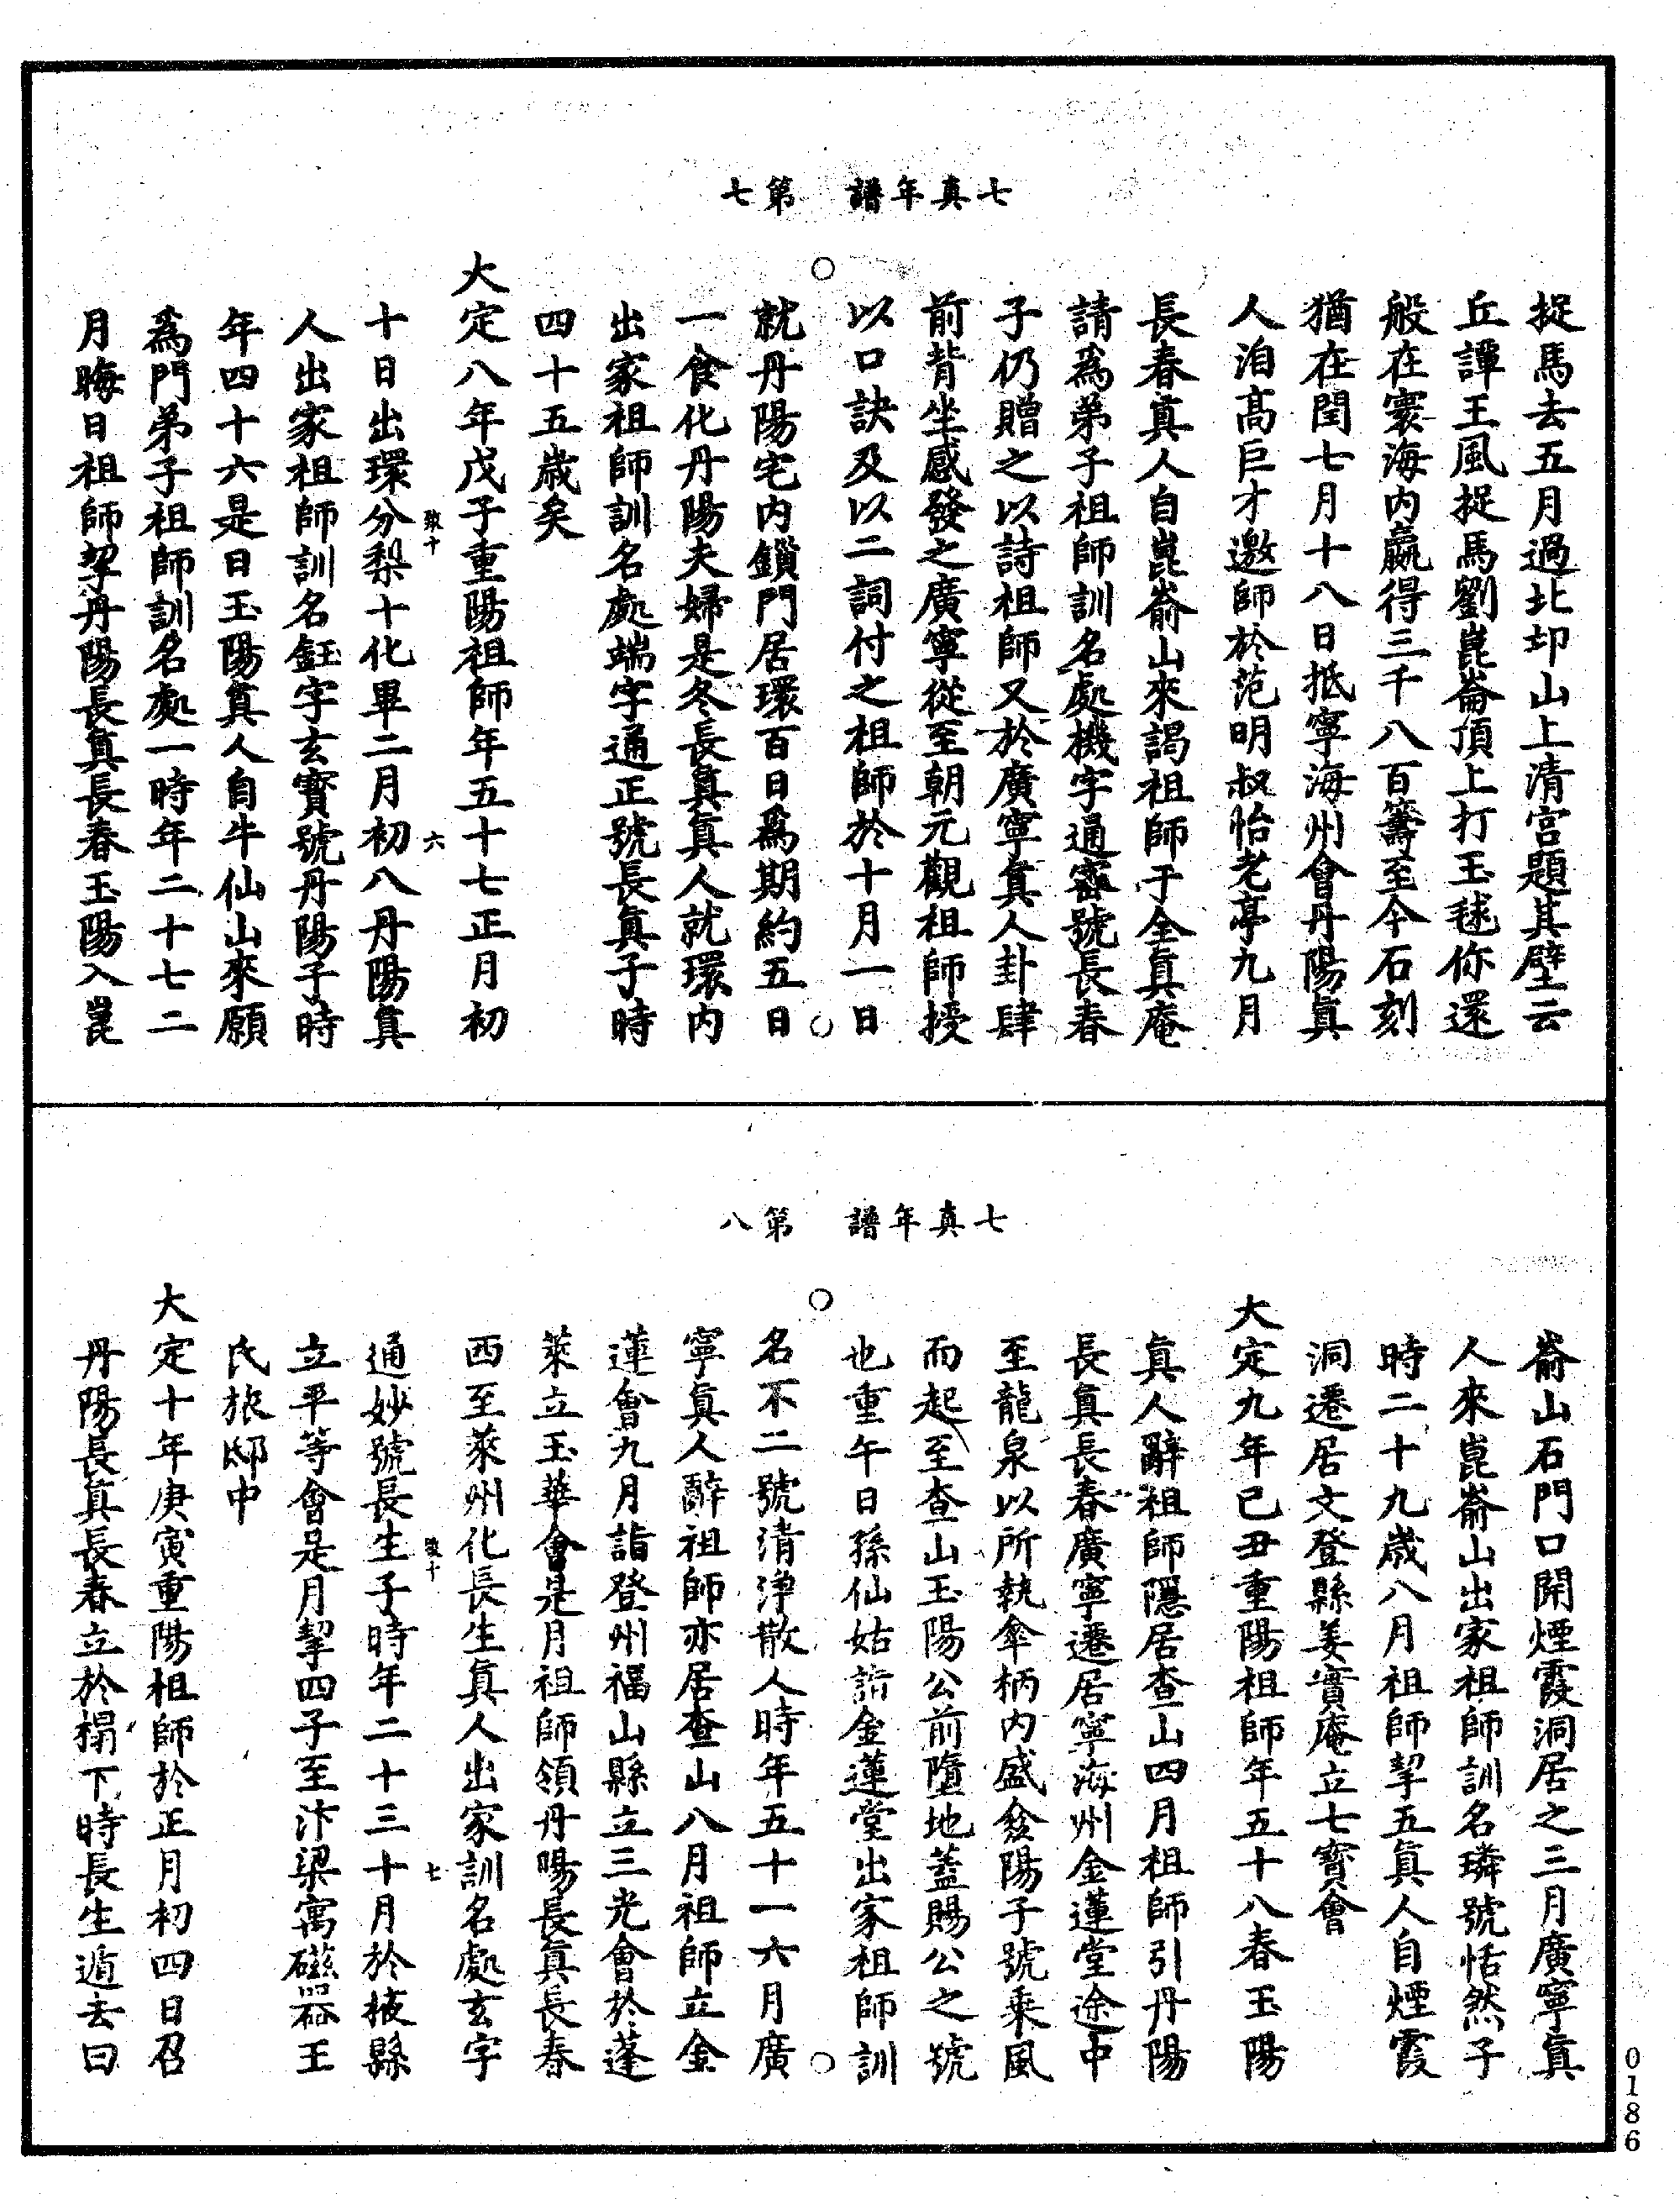 七真年譜　第七
捉馬去五月過北邙山上清宮題其壁云
丘譚王風捉馬劉崑崙頂上打玉毬你還
般在寰海內贏得三千八百籌至今石刻
猶在閏七月十八日抵寧海州會丹陽真
人洎高巨才邀師於范明叔怡老亭九月
長春真人自崑崳山來謁祖師于全真庵
請爲弟子祖師訓名處機字通密號長春
子仍贈之以詩祖師又於廣寧真人卦肆
前背坐感發之廣寧從至朝元觀祖師授
以口訣及以二詞付之祖師於十月一日
就丹陽宅內鎖門居環百日爲期約五日
一食化丹陽夫婦是冬長真真人就環內
出家祖師訓名處端字通正號長真子時
四十五歲矣
大定八年戊子重陽祖師年五十七正月初
十日出環分梨十化畢二月初八丹陽真
人出家祖師訓名鈺字玄寳號丹陽子時
年四十六是日玉陽真人自牛仙山來願
爲門弟子祖師訓名處一時年二十七二
月晦日祖師挈丹陽長真長春玉陽入崑
致十
六
七真年譜　第八
崳山石門口開煙霞洞居之三月廣寧真
人來崑崳山出家祖師訓名璘號恬然子
時二十九歲八月祖師挈五真人自煙霞
洞遷居文登縣姜實庵立七寳會
大定九年己丑重陽祖師年五十八春玉陽
真人辭祖師隱居查山四月祖師引丹陽
長真長春廣寧遷居寧海州金蓮堂途中
至龍泉以所執傘柄內盛傘陽子號乘風
而起至查山玉陽公前墮地蓋賜公之號
也重午日孫仙姑詣金蓮堂出家祖師訓
名不二號清淨散人時年五十一六月廣
寧真人辭祖師亦居查山八月祖師立金
蓮會九月詣登州福山縣立三光會於蓬
萊立玉華會是月祖師領丹陽長真長春
西至萊州化長生真人出家訓名處玄字
通妙號長生子時年二十三十月於掖縣
立平等會是月挈四子至汴梁寓磁器王
氏旅邸中
大定十年庚寅重陽祖師於正月初四日召
丹陽長真長春立於榻下時長生遁去曰
致十
七
0186